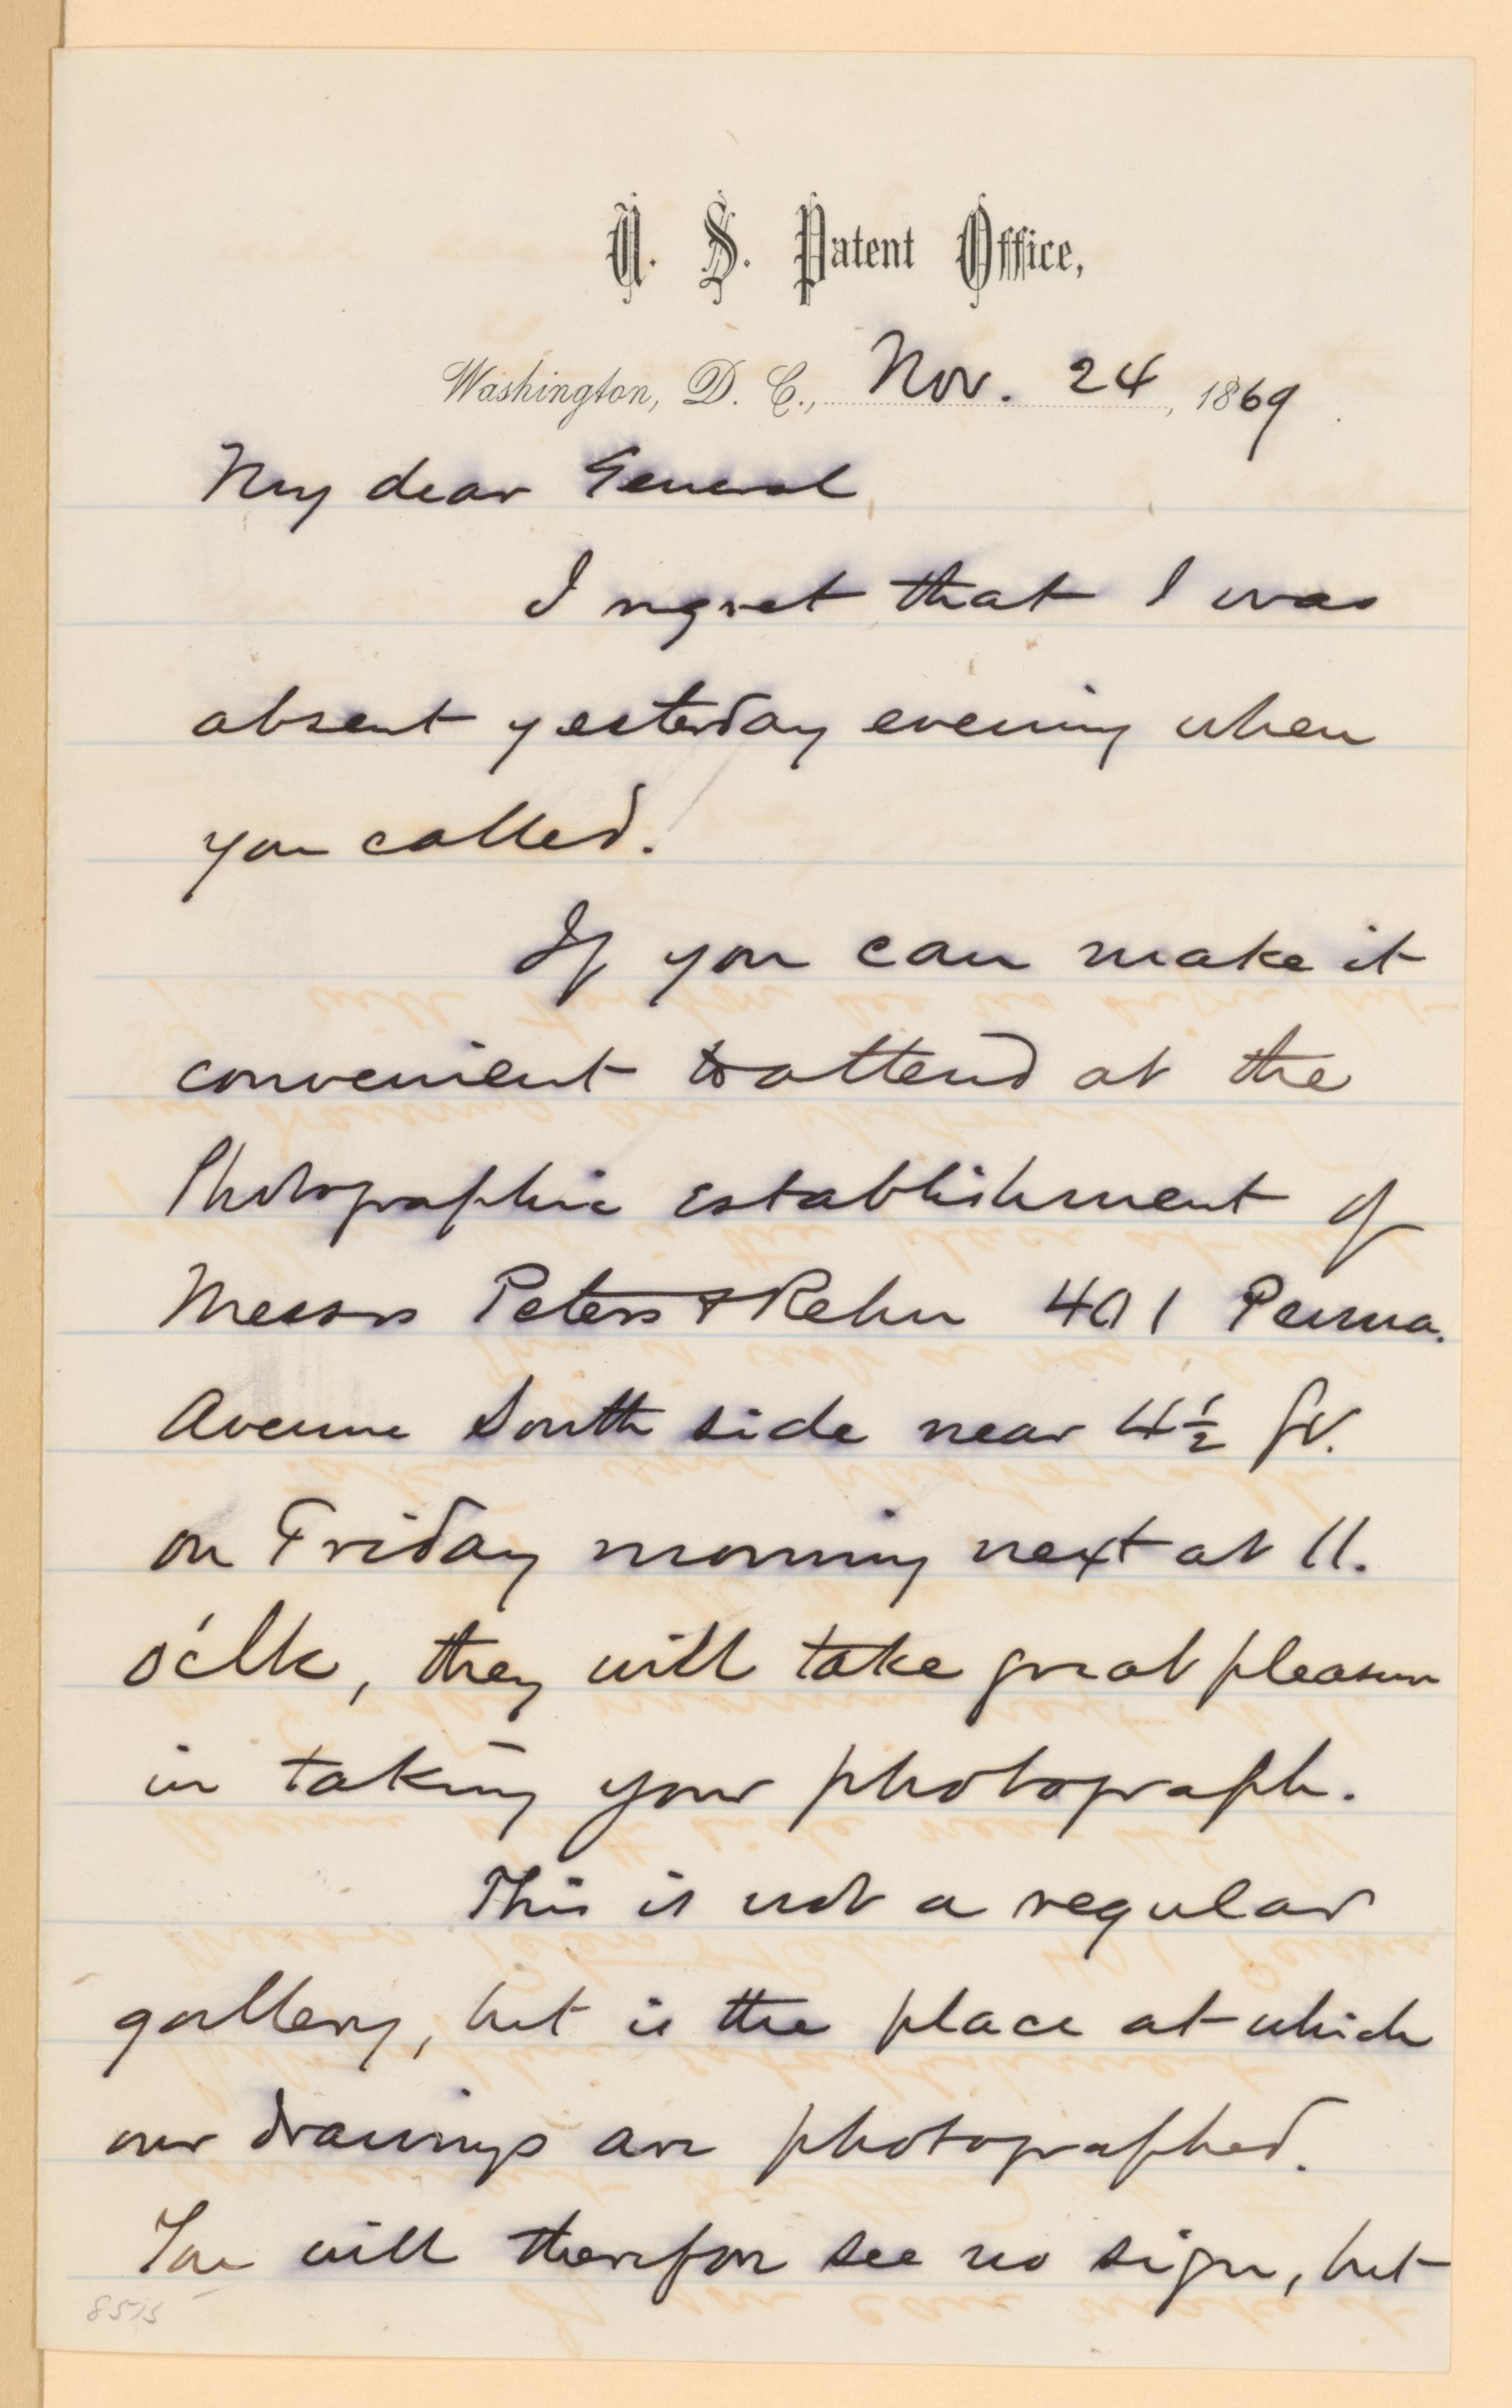 U. S. Patent Office,
Washington, D. C., Nov. 24, 1869
My dear General
I regret that I was
absent yesterday evening when
you called.
If you can make it
convenient to attend at the
Photographic establishment of
Messrs Peters & Rehn 401 Penna.
Avenue South side near 4½ St.
on Friday morning next at 11.
o'clk, they will take great pleasure
in taking your photograph.
This is not a regular
gallery, but is the place at which
our drawings are photographed.
You will therefore see no sign, but
8515